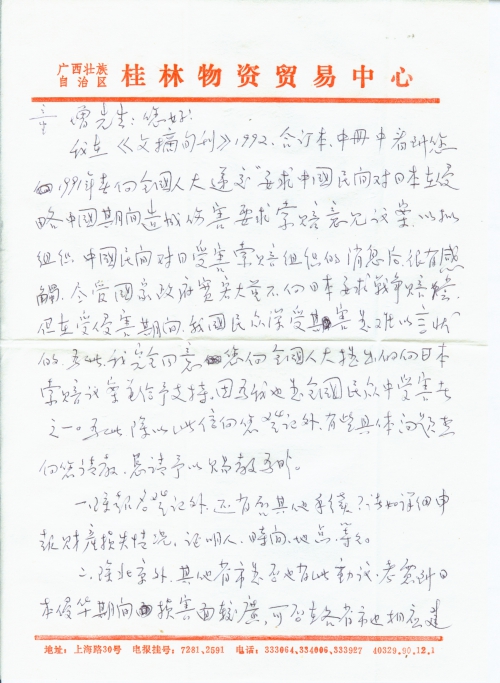 广西壮族
自治区
桂林物资贸易中心
曾先生：您好！
我在《文摘旬刊》1992.合订本.中册中看到您
1991年春向全国人大递交"要求中國民间对日本在侵
略中國期间造成伤害要求索赔意见议案，以拟
组织中國民间对日受害索赔组织的消息后很有感
觸。尽管國家政府宽宏大量不向日本要求战争赔偿.
但在受侵害期间，我國民众深受其害是难以言状
的.为此，我完全同意您向全國人大提出的向日本
索赔议案并给予支持，因为我也是全國民众中受害者
之一。为此除以此信向您登记外，有些具体问题想
向您请教，恳请予以赐教为盼。
一.除报名登记外，还有否其他手续？诸如详细申
報财產损失情况，证明人.時间.地点.等等.
二.除北京外，其他省市是否也有此動议.考虑到日
本侵华期间损害面较廣，可否在各省市也相应建
地址：上海路30号 电报挂号：7281.2591 电话：333064.334006.333927 40329.90.12.1